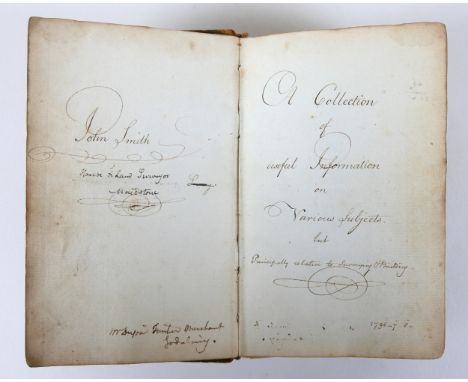 John Smith
House & Land Surveyor
Maidstone
Mr Timber Merchant
Godalming.
A Collection
of
useful Information
on
Various Subjects.
but
Principally relative to Surveying & Building